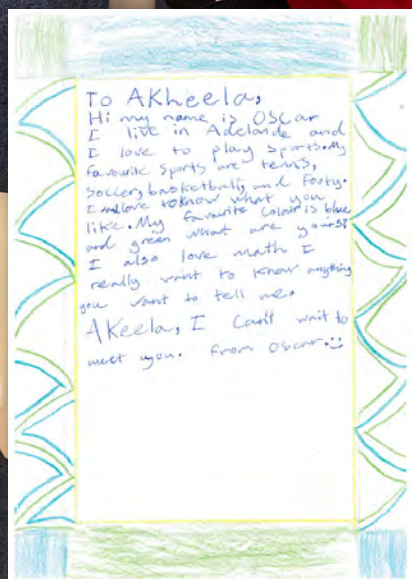 To AKheela,
Hi my name is OSCar
I live in Adelaide and
I love to play sports. My
favourite sports are tenis,
soccery basketball, and footy.
I love to know what you
like. My favourite Colour is blue
and green what are yours?
I also love math I
really want to know anything
you want to tell me.
AKeela, I Can't wait to
meet you. From Oscar.